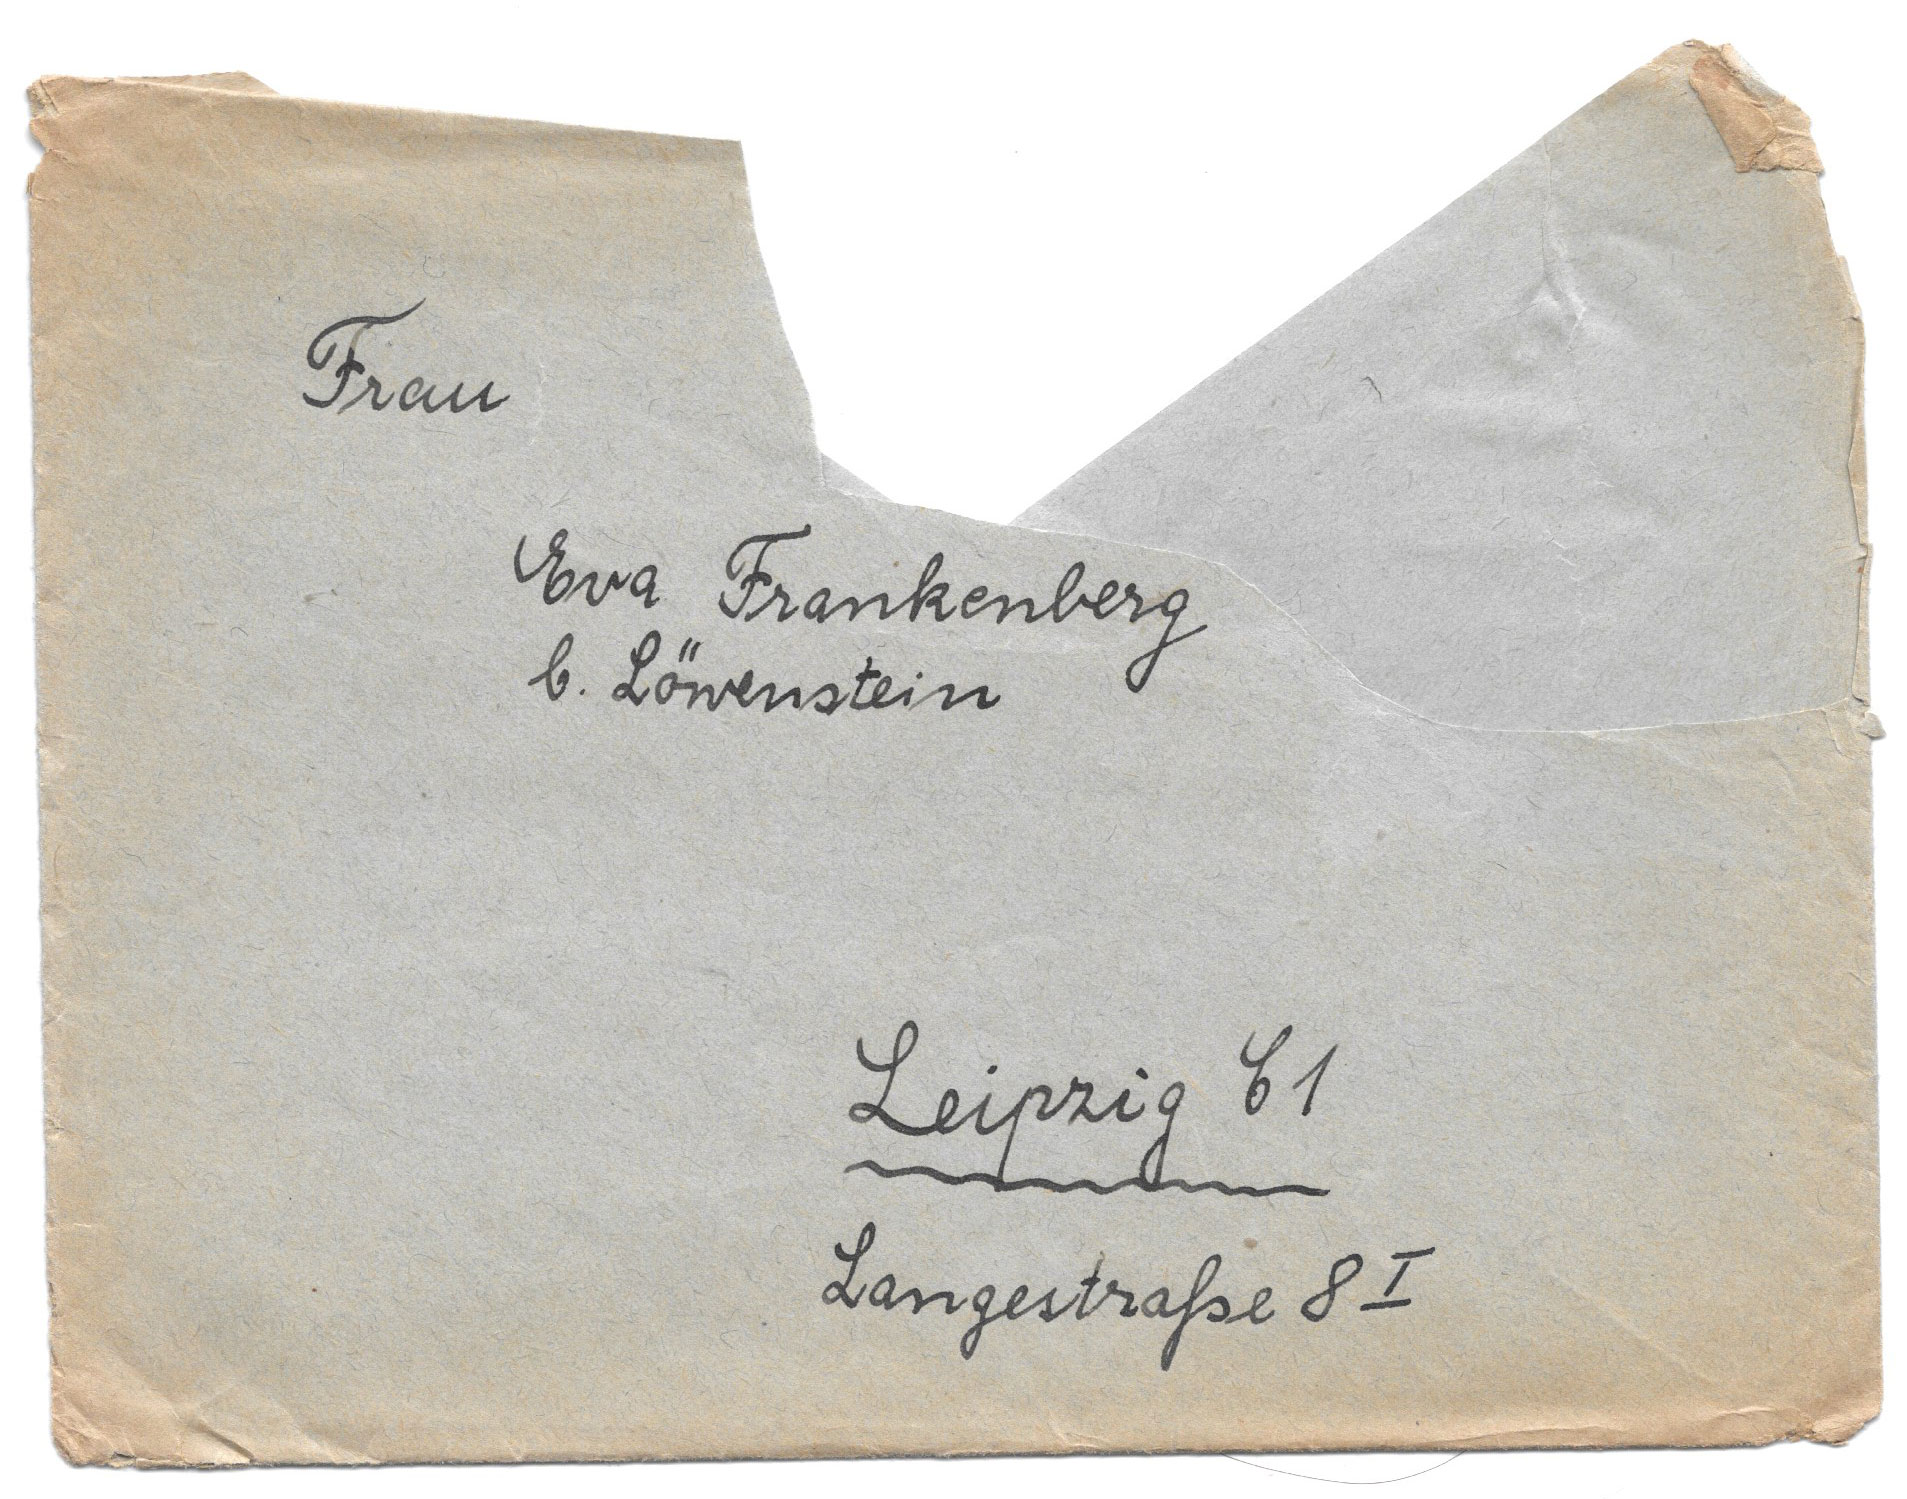 Frau
Eva Frankenberg
b. Löwenstein
Leipzig C1
Langestraße 8 I